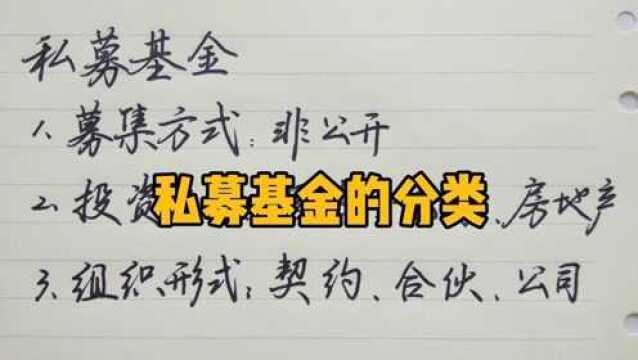 私募基金
1、募集方式：非公开
2、投资
私募基金的分类
、房地产
3、组织形式：契约、合伙、公司